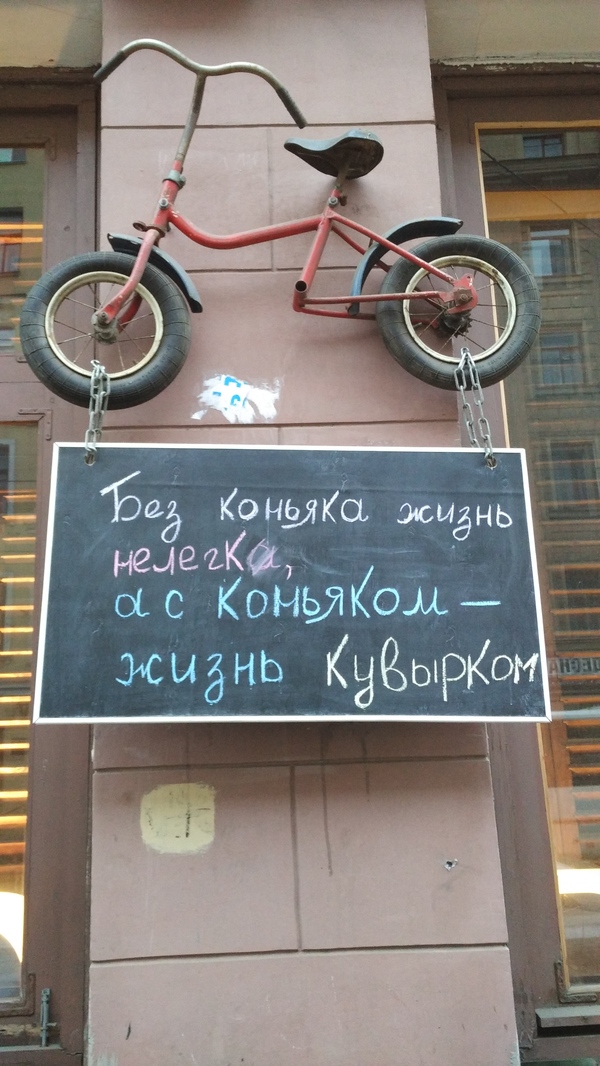 Без коньяка жизнь
нелегка,
а с коньяком —
жизнь кувырком